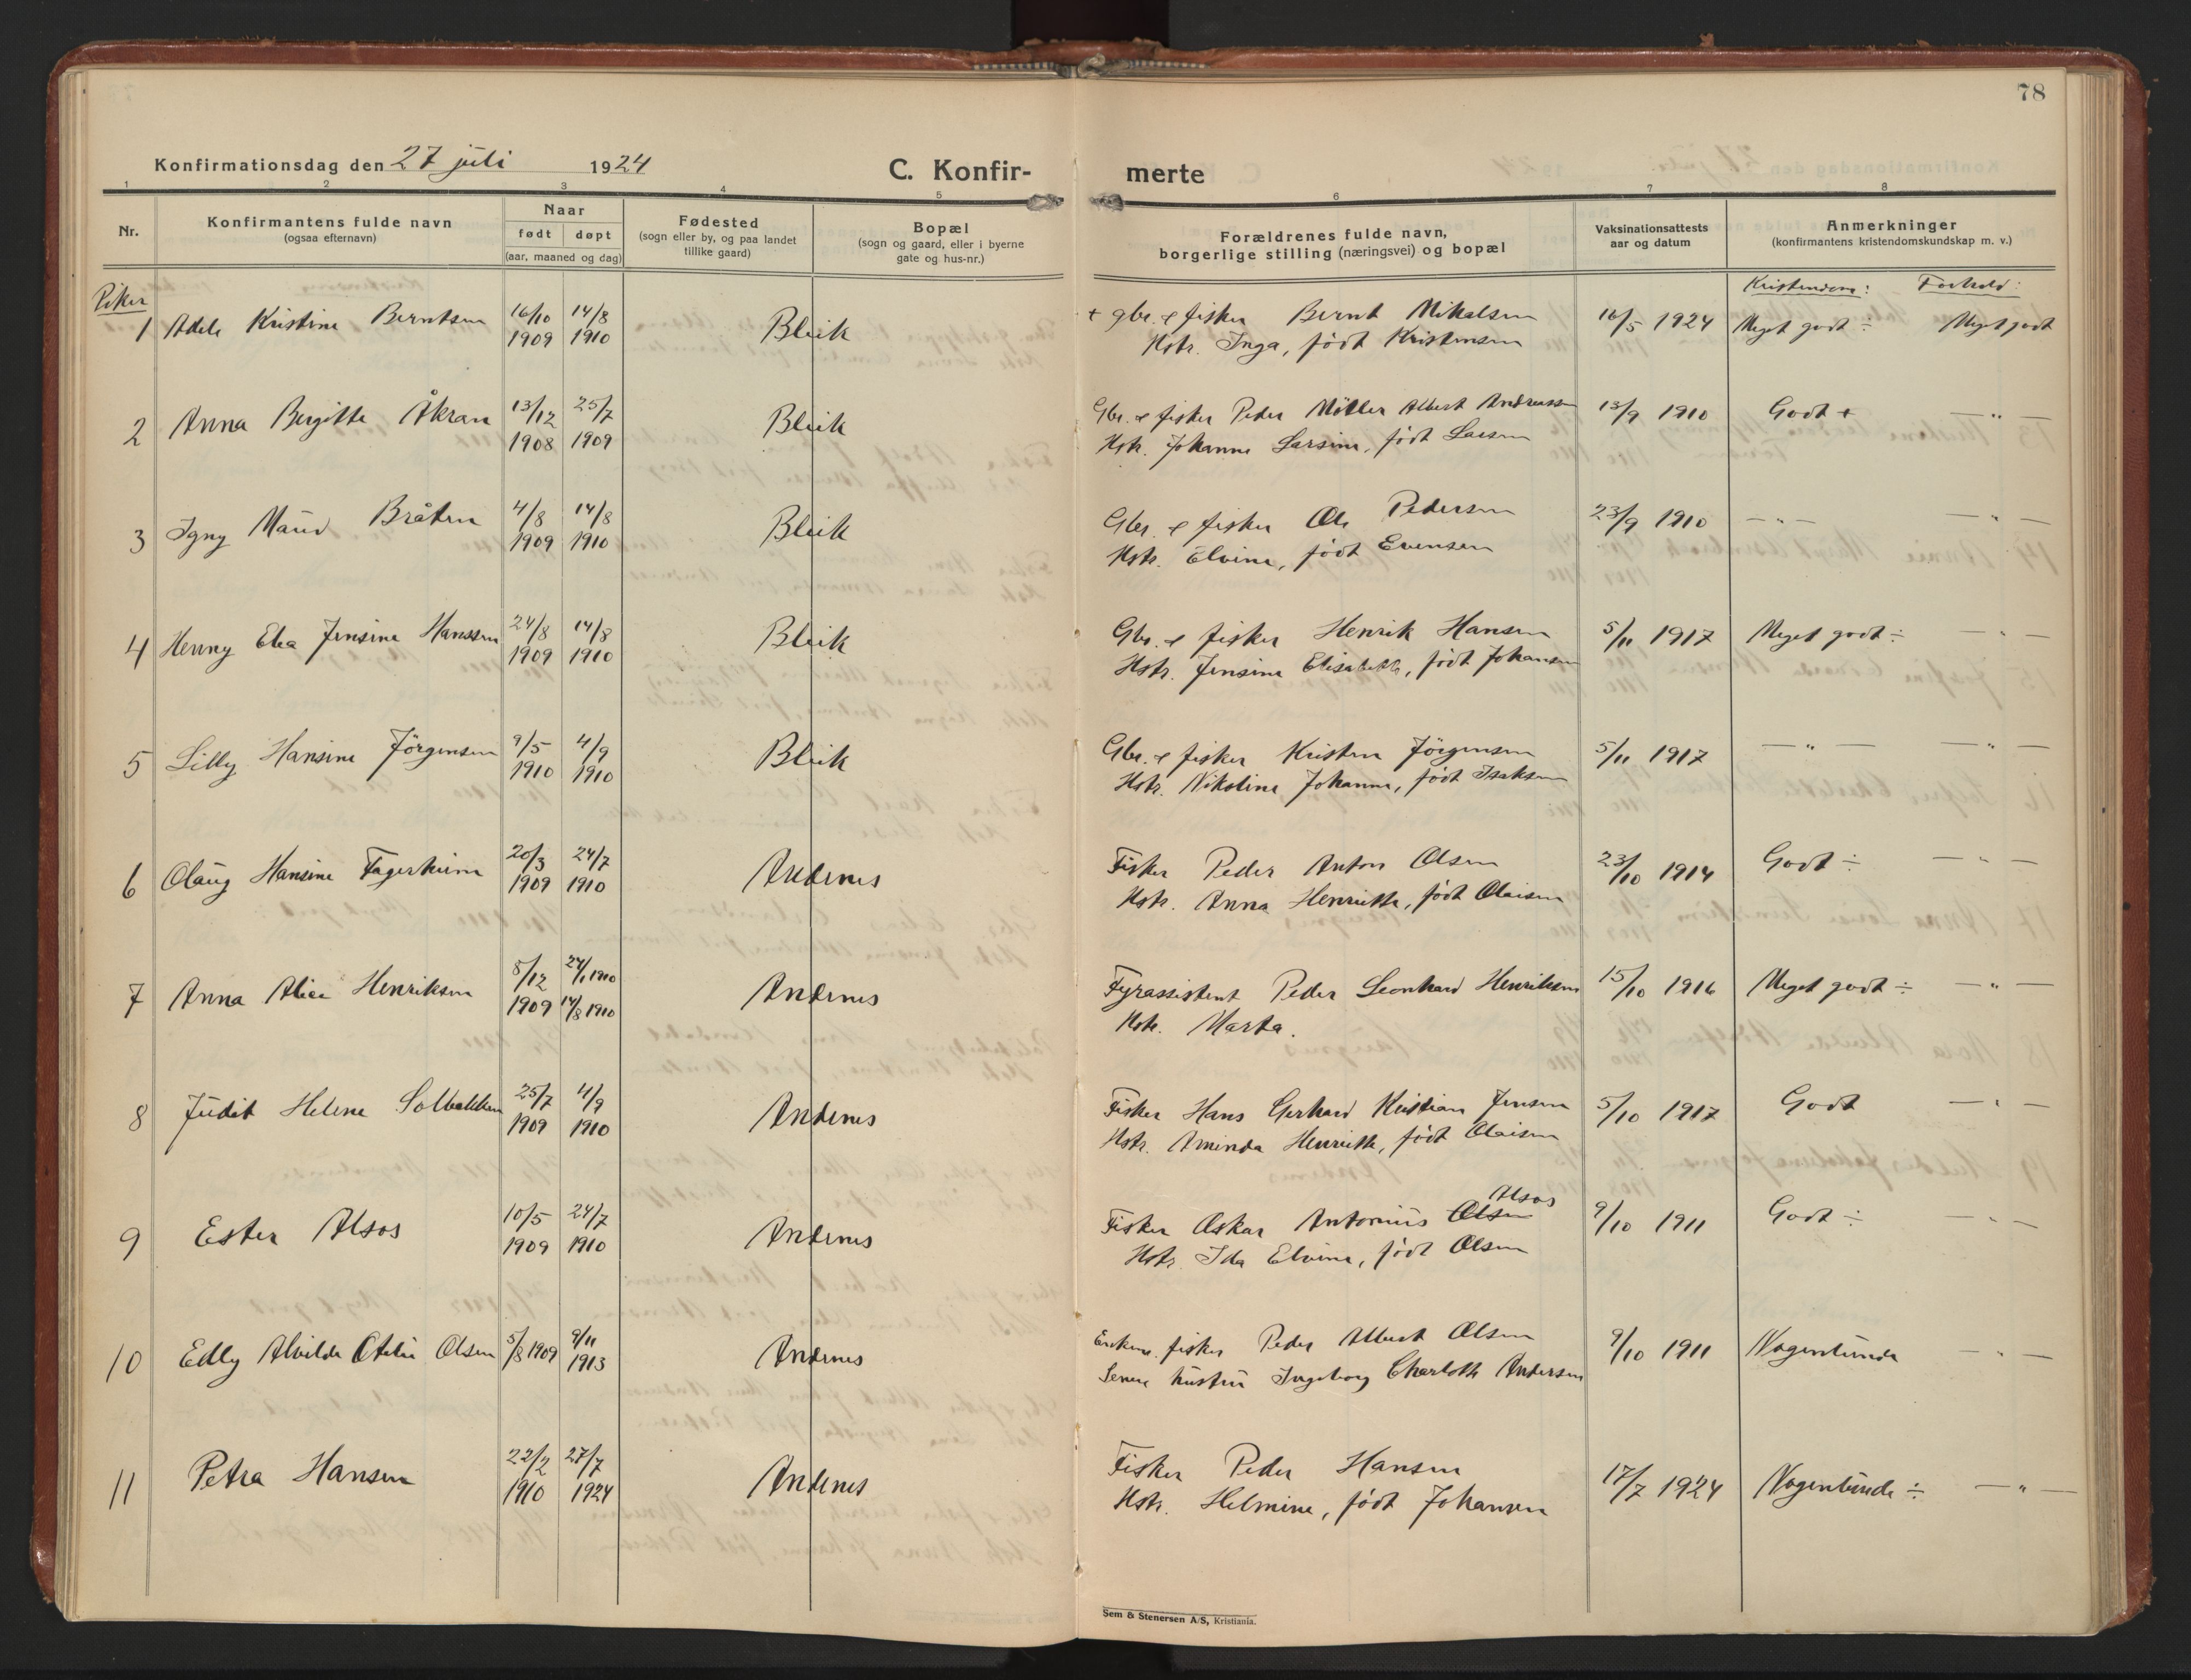 78
Konfirmationsdag den 27 juli 1924
C. Konfir- merte
1 2 3 4 5 6 7 8
Nr.
Konfirmantens fulde navn
(ogsaa efternavn)
Naar
født døpt
(aar, maaned og dag)
Fødested
(sogn eller by, og paa landet
tillike gaard)
Bopæl
(sogn og gaard, eller i byerne
gate og hus-nr.)
Forældrenes fulde navn,
borgerlige stilling (næringsvei) og bopæl
Vaksinationsattests
aar og datum
Anmerkninger
(konfirmantens kristendomskundskap m. v.)
Piker
Kristendom: Forhold:
1 Adele Kristine Berntsen 16/10 1909 14/8 1910 Bleik + gbr. & fisker Bernt Mikalsen 16/5 1924 Meget godt ÷ Meget godt
Hstr. Inga, født Kristensen
2 Anna Bergitte Åkran 13/12 1908 25/7 1909 Bleik Gbr. & fisker Peder Möller Albert Andreassen 13/9 1910 Godt + — " —
Hstr. Johanna Larsine, født Larsen
3 Igny Maud Bråten 4/8 1909 14/8 1910 Bleik Gbr. & fisker Ole Pedersen 23/9 1910 — " — — " —
Hstr. Elvine, født Evensen
4 Henny Elea Jensine Hanssen 24/8 1909 14/8 1910 Bleik Gbr. & fisker Henrik Hansen 5/11 1917 Meget godt ÷ — " —
Hstr. Jensine Elisabeth, født Johansen
5 Lilly Hansine Jörgensen 9/5 1910 4/9 1910 Bleik Gbr. & fisker Kristen Jörgensen 5/11 1917 — " — — " —
Hstr. Nikoline Johanna, født Isaksen
6 Olaug Hansine Fagerheim 20/3 1909 24/7 1910 Andenes Fisker Peder Anton Olsen 23/10 1914 Godt ÷ — " —
Hstr. Anna Henriette, født Olaisen
7 Anna Alice Henriksen 8/12 1909 24/1 1910 14/8 1910 Andenes Fyrassistent Peder Leonhard Henriksen 15/10 1916 Meget godt ÷ — " —
Hstr. Marta.
8 Judit Helene Solbakken 25/7 1909 4/9 1910 Andenes Fisker Hans Gerhard Kristian Jensen 5/10 1917 Godt — " —
Hstr. Aminda Henriette, født Olaisen
9 Ester Alsos 10/5 1909 24/7 1910 Andenes Fisker Oskar Antonius Olsen Alsos 9/10 1911 Godt ÷ — " —
Hstr. Ida Elvine, født Olsen
10 Edly Alvilde Otelie Olsen 5/8 1909 9/11 1913 Andenes Enkem. fisker Peder Albert Olsen 9/10 1911 Nogenlunde — " —
Senere hustru Ingeborg Charlotte Andersen
11 Petra Hansen 22/2 1910 27/7 1924 Andenes Fisker Peder Hansen 17/7 1924 Nogenlunde ÷ — " —
Hstr. Helmine, født Johansen
Sem & Stenersen A/S, Kristiania.